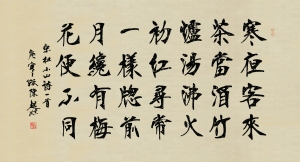 寒夜客來
茶當酒竹
爐湯沸火
初紅尋常
一樣牕前
月纔有梅
花便不同
宋杜小山詩一首
庚寅